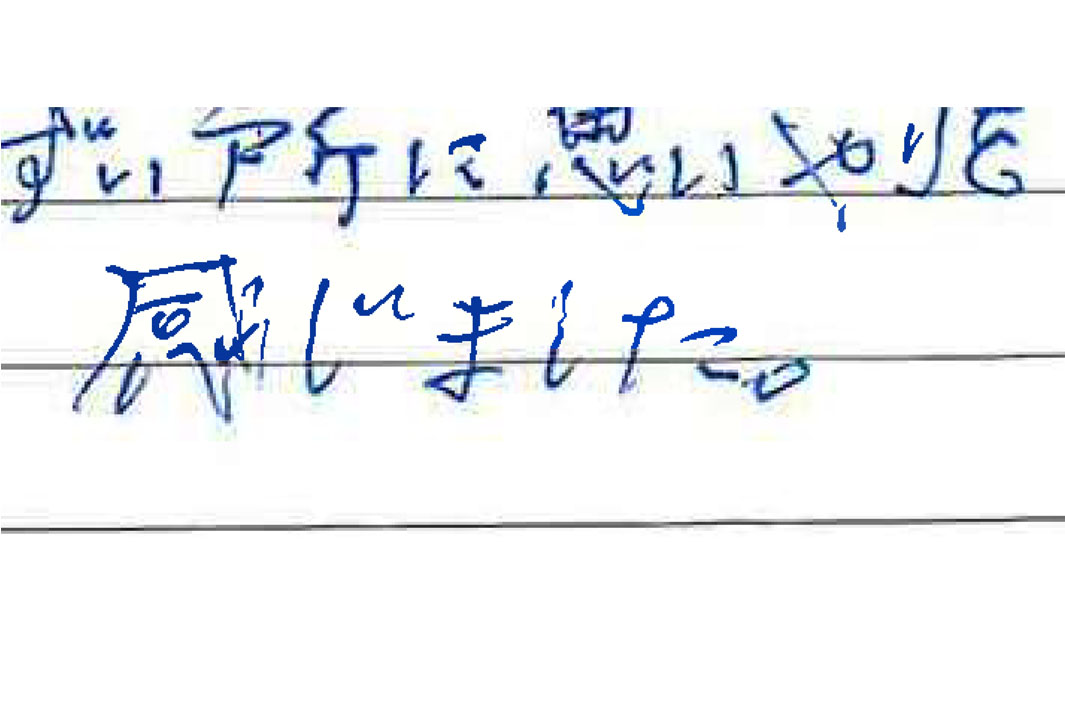 ずい所に思いやりを
感じました。